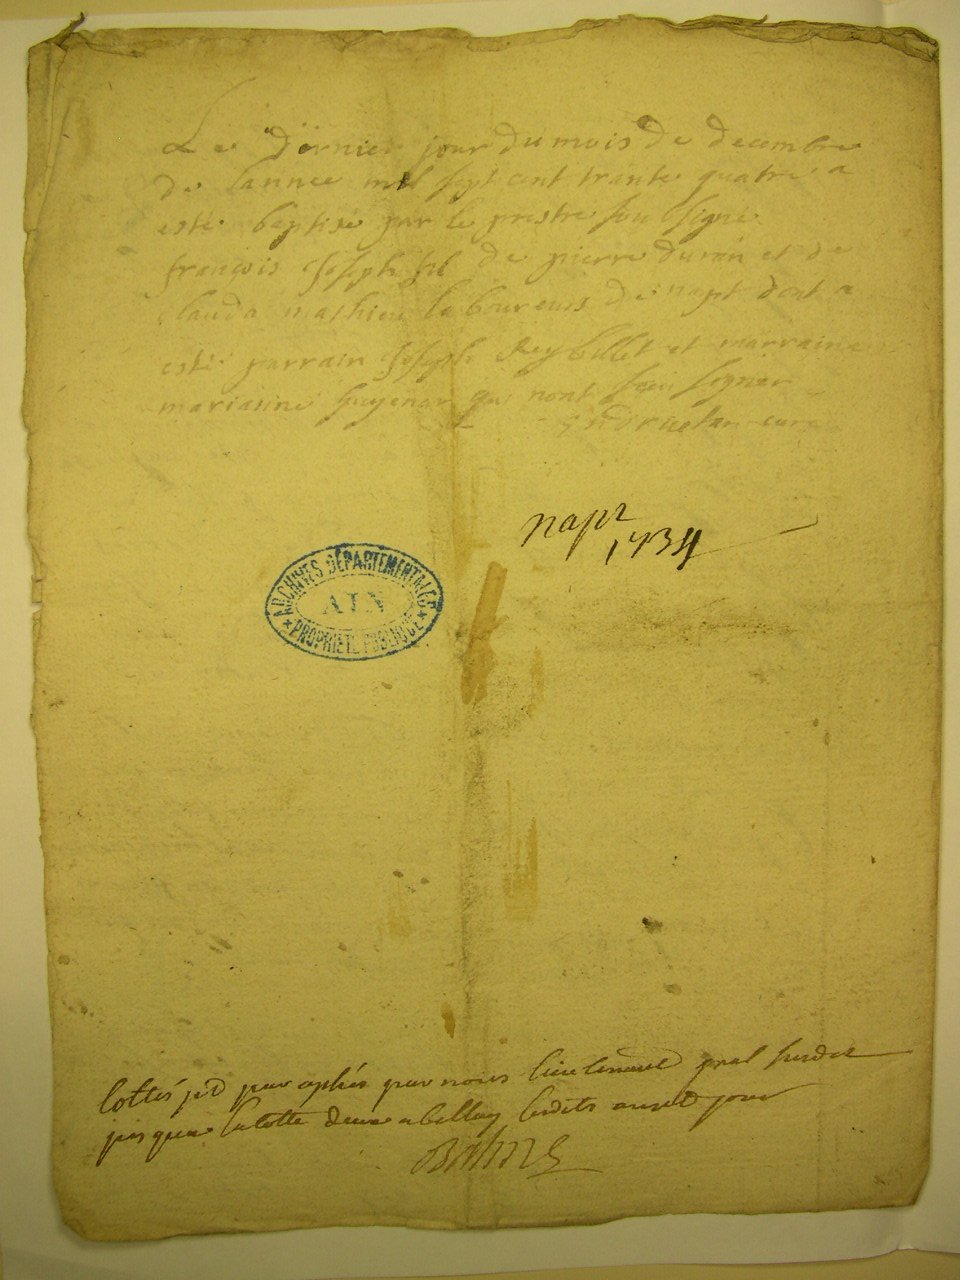 Le dernier jour du mois de decembre
de lannee mil sept cent trante quatre a
esté baptisé par le prestre sou signé
françois Joseph fil de pierre durin et de
Clauda mathieu laboureurs de napt dont a
esté parrain Joseph Rey billet et marraine
marianne qui nont seu signer
cure
napt
1734
ARCHIVES DÉPARTEMENTALES
AIN
PROPRIÉTÉ PUBLIQUE
cottés et par nous lieutenant gnal
jusqua la cotte deux a belley jour